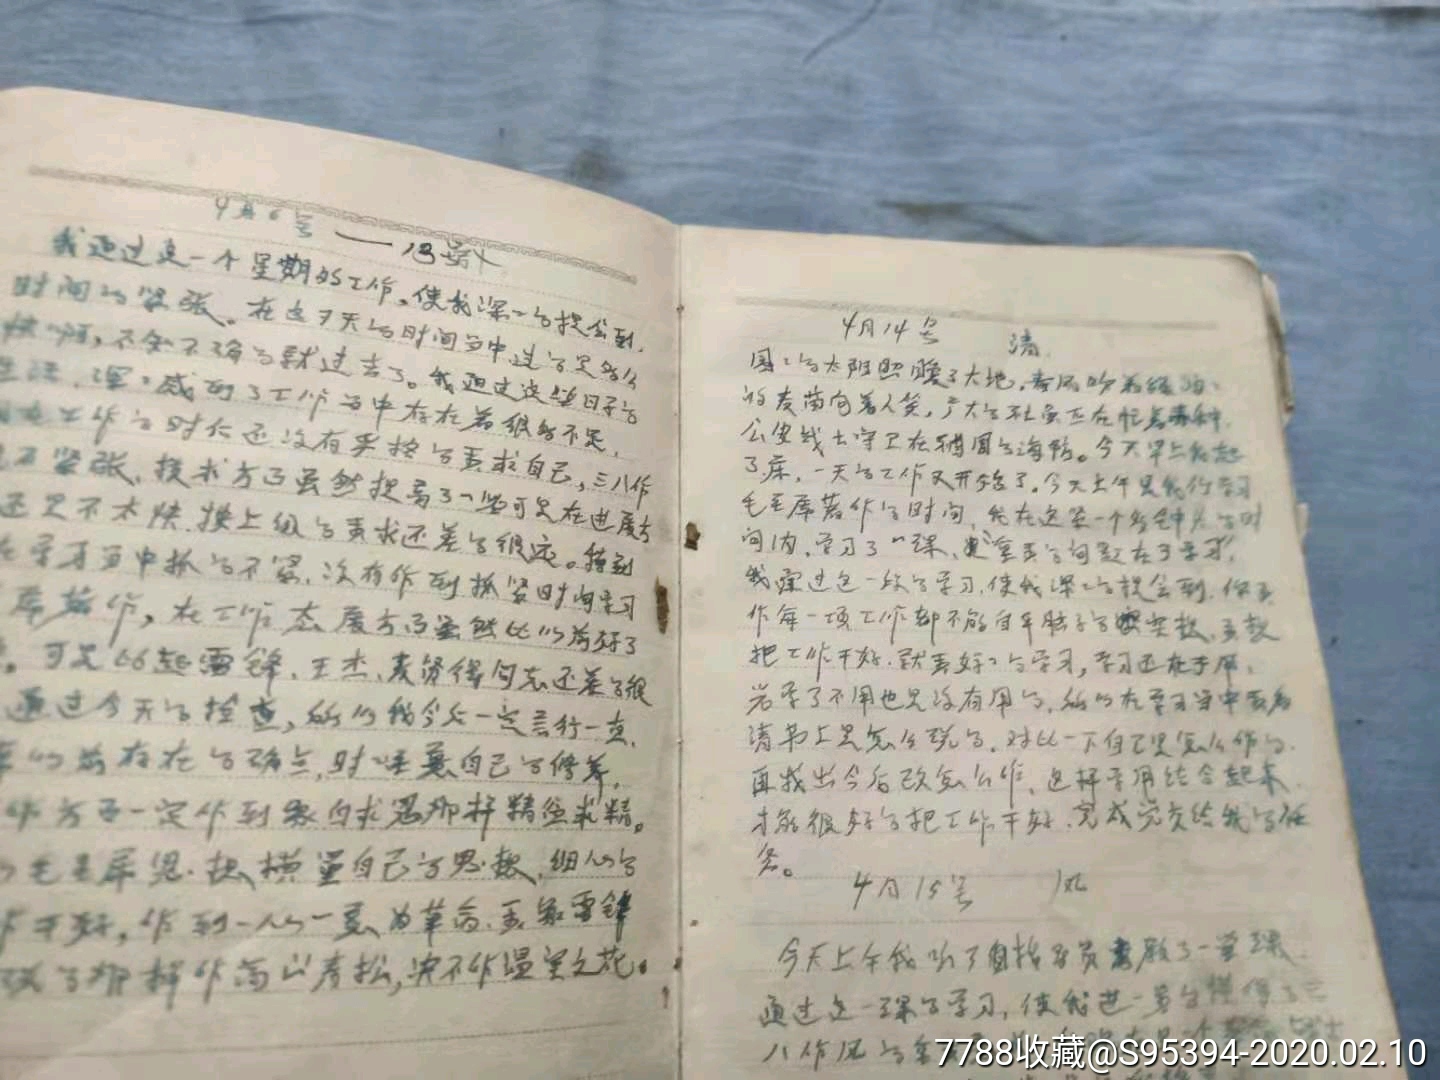 4月6号 — 13号
我通过这一个星期的工作。使我深一的提会到,
时间的紧张。在这7天的时间当中,过的是多么
快啊,不知不觉的就过去了。我通过这些日子的
生活,深深感到了工作当中存在着很多不足,
工作的时候还没有严格的要求自己,三八作
不紧张,技术方面虽然提高了一些可是在进度方
还是不太快,按上级的要求还差的很远。特别
在学习当中抓的不紧,没有作到抓紧时间学习
席著作,在工作态度方面虽然比以前好了
。可是比起雷锋、王杰、麦贤得同志还差的很
通过今天的检查,所以我今后一定言行一致,
以前存在的弱点,时时注意自己的修养,
作方面一定作到象白求恩那样精益求精。
毛主席思想横量自己的思想,细心的
干好,作到一心一意为革命,要象雷锋
张的那样作高山青松,决不作温室之花。
4月14号 清
园园的太阳照暖了大地,春风吹着绿油油
的麦苗向着人笑,广大的社员正在忙着春种,
公安战士守卫在祖国的海防。今天早上我起
了床,一天的工作又开始了。今天上午是我们学习
毛主席著作的时间,我在这里一个多钟头的时
间内,学习了一课,重要的问题在于学习,
我通过这一次的学习,使我深深的提会到,你要
作每一项工作都不能自干脑子的空想,要想
把工作干好,就要好好的学习,学习还在于用,
若学了不用也是没有用的,所以在学习当中要看
清书上是怎么说的,对比一下自己是怎么作的,
再找出今后改怎么作,这样学用结合起来
才能很好的把工作干好,完成党交给我的任
务。
4月15号 风
今天上午我听了指导员教了一堂课
通过这一课的学习,使我进一步的懂得了三
八作风的
7788收藏@S95394-2020.02.10